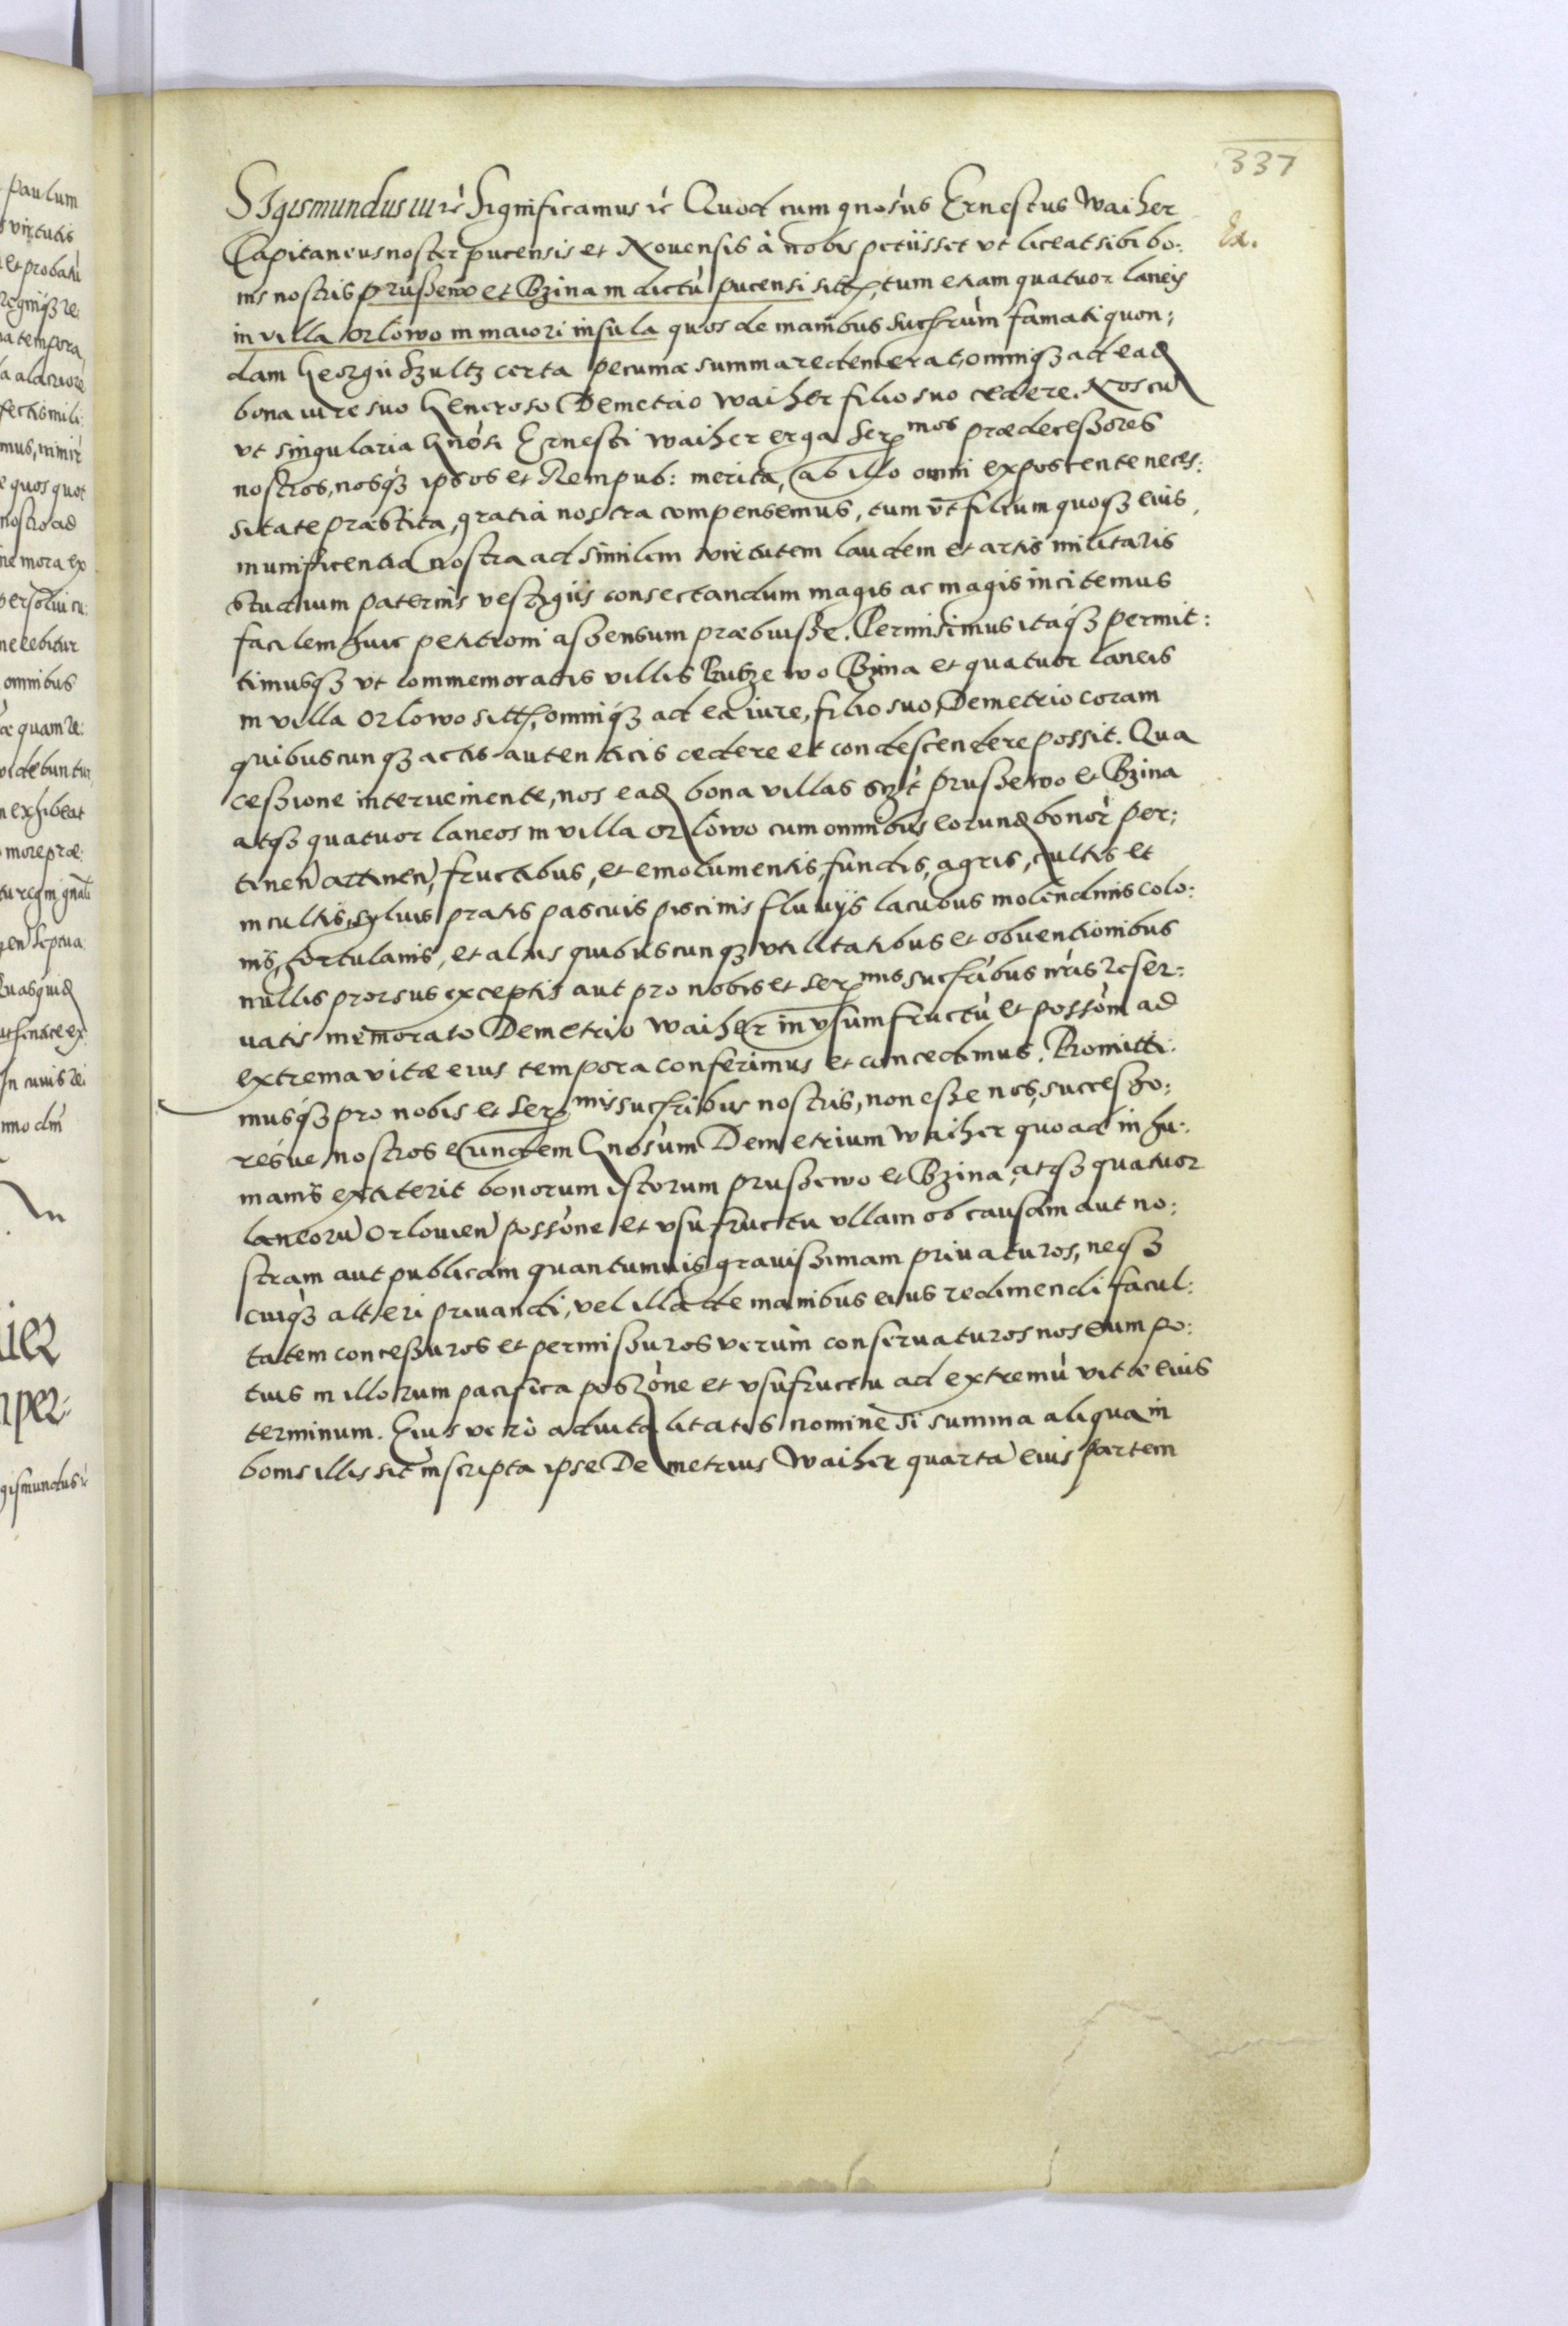 337
Sigismundus III rc̀ Significamus rc̀ Quod cum gnosùs Ernestus Waiher
Ex.
Capitaneus noster pucensis et Nouensis à nobis petiisset vt liceat sibi bo:
nis nostris prussewo et Bzina in dictù pucensi sitt, tum etiam quatuor laneis
in villa Orlowo in maiori insula quos de manibus sucsrùm famati quon:
dam Georgii Szultz certa pecuniæ summa redemerat, omniqз ad ead
bona iure suo Generoso Demetrio Waiher filio suo cedere. Nos cu
vt singularia Gnòsi Ernesti Waiher erga Ser mos prædecessores
nostros, nosqз ipsos et Rempub: merita, ab illo omni exposcente neces:
sitate præstita, gratia nostra compensemus, tum vt filium quoqз eius,
munificentia nostra ad similem virtutem laudem et artis militaris
studium paternis vestigiis consectandum magis ac magis incitemus
facilem huic petitioni assensum præbuisse. Permisimus itaqз permit:
timusqз vt commemoratis villis Rutzewo Bzina et quatuor laneis
in villa Orlowo sitt, omniqз ad ea iure, filio suo, Demetrio coram
quibuscunqз actis autenticis cedere et condescendere possit. Qua
cessione interueniente, nos ead bona villas szt prussewo et Bzina
atqз quatuor laneos in villa Orlowo cum omnibus eorund bonor̀ per:
tinen attinen, fructibus, et emolumentis, fundis, agris, cultis et
incultis, syluis pratis pascuis piscinis fluuijs lacubus molendinis colo:
nis, hortulanis, et aliis quibuscunqз vtilitatibus et obuentionibus
nullis prorsus exceptis aut pro nobis et Ser mis sucsribus nris reser:
uatis memorato Demetrio Waiher in vsumfructù et possòm ad
extrema vitæ eius tempora conferimus et concedimus. Promitti:
musqз pro nobis et Ser mis sucsribus nostris, non esse nos, successo:
resue nostros eundem Gnosùm Demetrium Waiher quoad in hu:
manis extiterit bonorum istorum prussewo et Bzina, atqз quatuor
laneoru Orlouien possòne et vsufructu vllam ob causam aut no:
stram aut publicam quantumuis grauissimam priuaturos, neqз
cuiqз alteri priuandi, vel illa de manibus eius redimendi facul:
tatem concessuros et permissuros verùm conseruaturos nos eum po:
tius in illorum pacifica posszòne et vsufructu ad extremù vitæ eius
terminum. Eius verò aduitalitatis nomine si summa aliqua in
bonis illis sit inscripta ipse Demetrius Waiher quarta eius partem